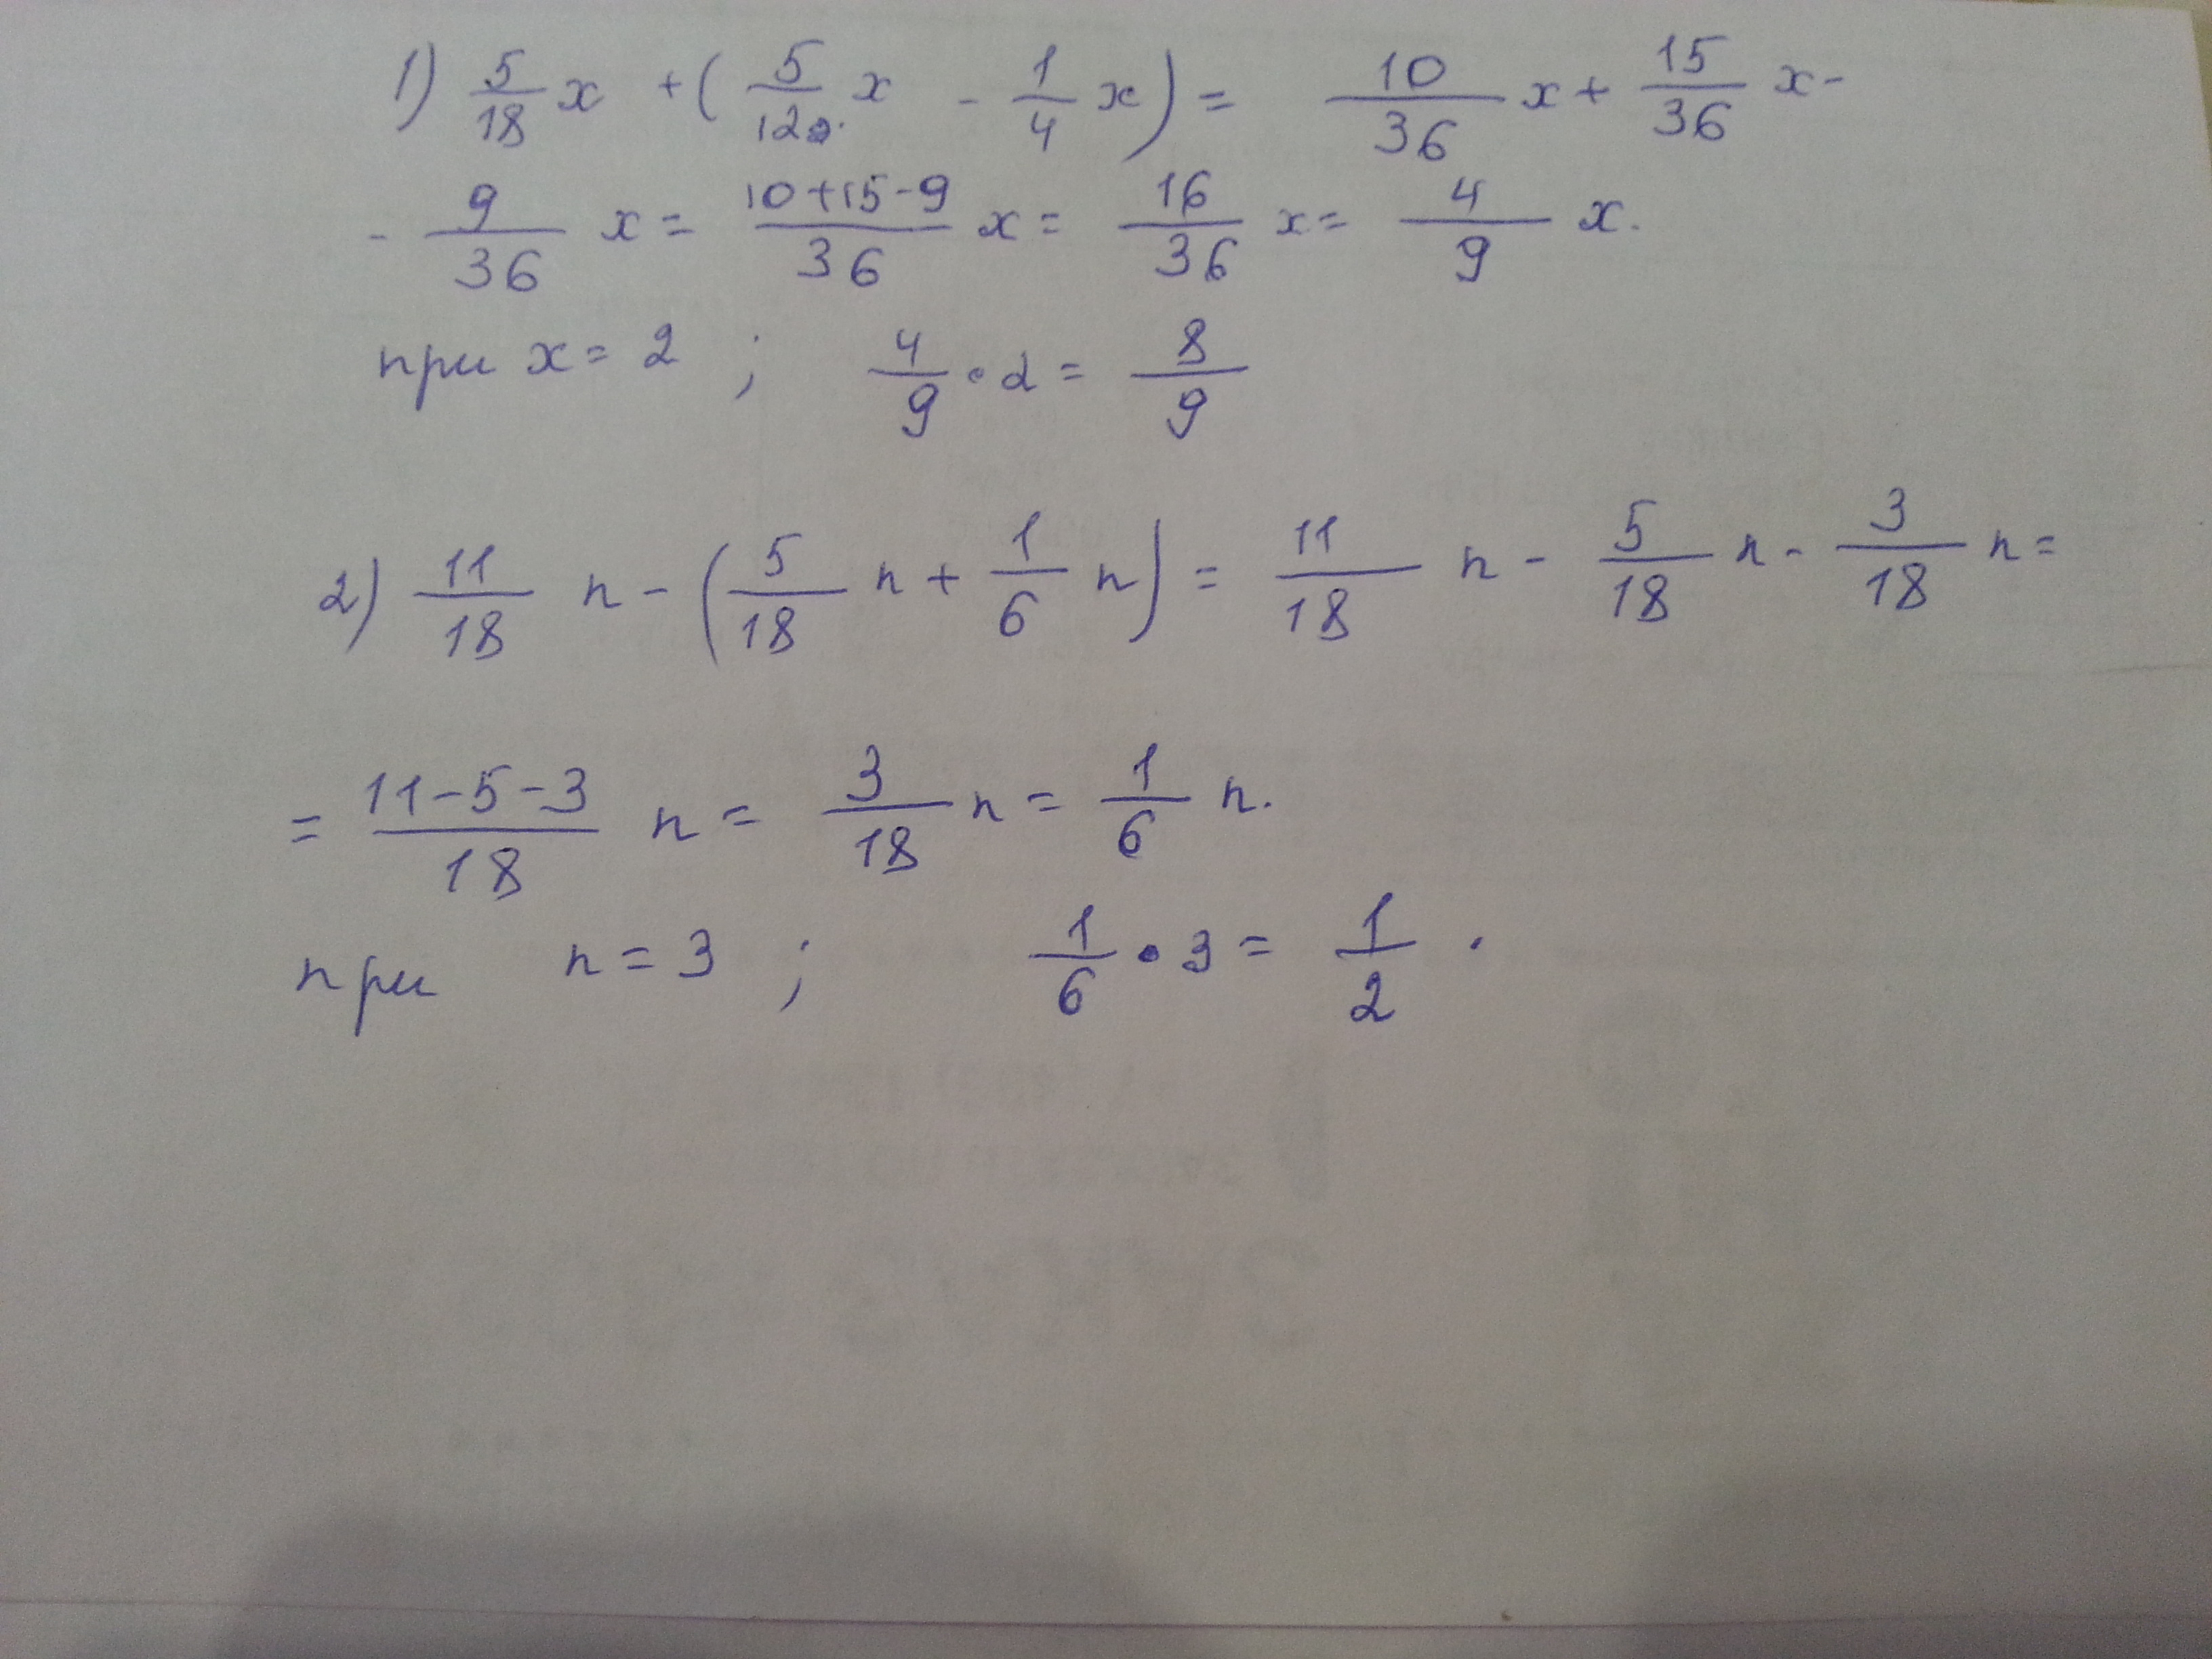 1) 5/18 x + (5/12 x - 1/4 x) = 10/36 x + 15/36 x -
- 9/36 x = (10+15-9)/36 x = 16/36 x = 4/9 x.
при x = 2 ; 4/9 • 2 = 8/9
2) 11/18 n - (5/18 n + 1/6 n) = 11/18 n - 5/18 n - 3/18 n =
= (11-5-3)/18 n = 3/18 n = 1/6 n.
при n = 3 ; 1/6 • 3 = 1/2 .